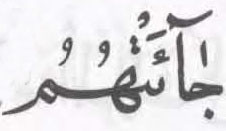 جَآئَتْهُمُ